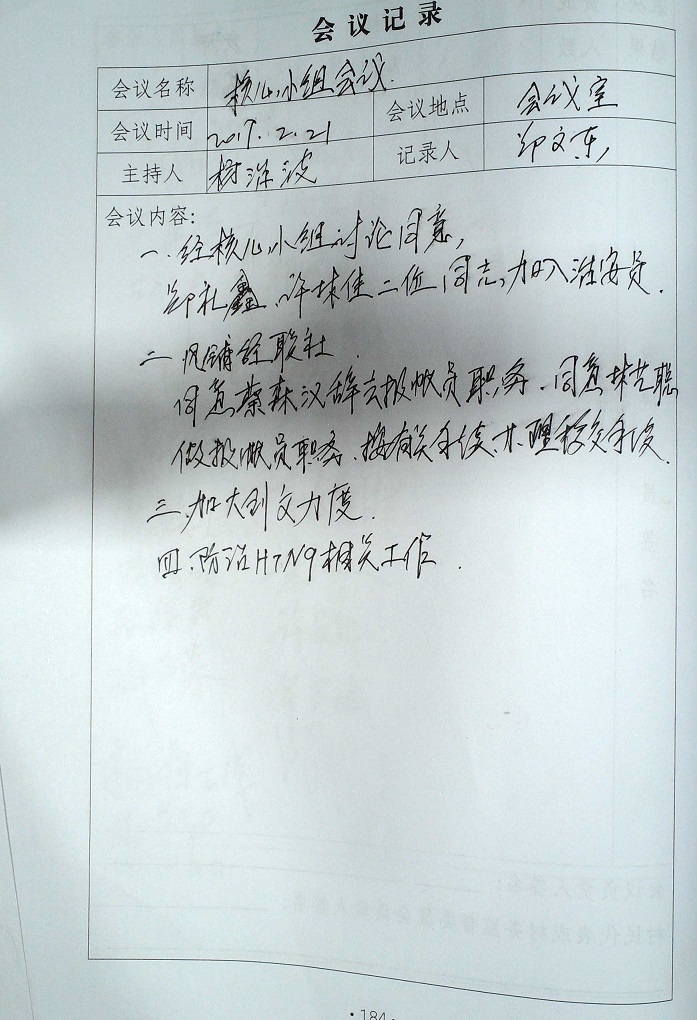 会议记录
会议名称 核心小组会议.
会议地点 会议室
会议时间 2017.2.21
记录人 郑文东
主持人 树洪波
会议内容:
一.经核心小组讨论同意,
郑礼鑫、许球佳二位同志,加入治安员.
二.经联社.
同意蔡森汉辞去报账员职务.同意
做报账员职务.按有关手续,办理移交手续.
三.加大创文力度.
四.防治H7N9相关工作.
·184·